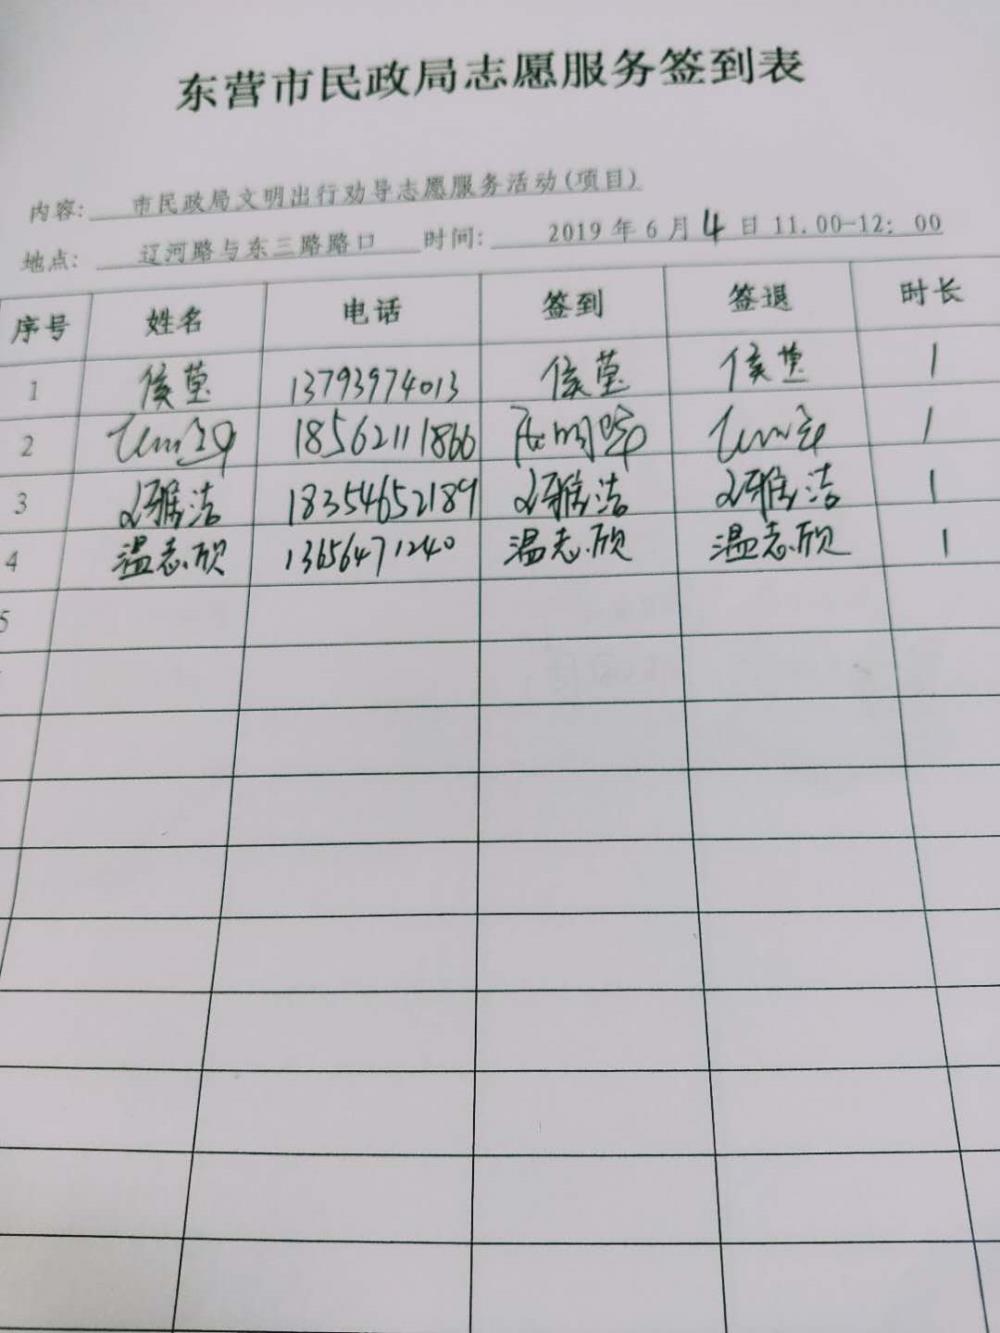 东营市民政局志愿服务签到表
内容: 市民政局文明出行劝导志愿服务活动(项目)
地点: 辽河路与东三路路口 时间: 2019年6月4日11.00-12:00
序号 姓名 电话 签到 签退 时长
1 侯莹 13793974013 侯莹 侯莹 1
2 18562111866 1
3 雅洁 18354652189 雅洁 雅洁 1
4 温志欣 13656471240 温志欣 温志欣 1
5